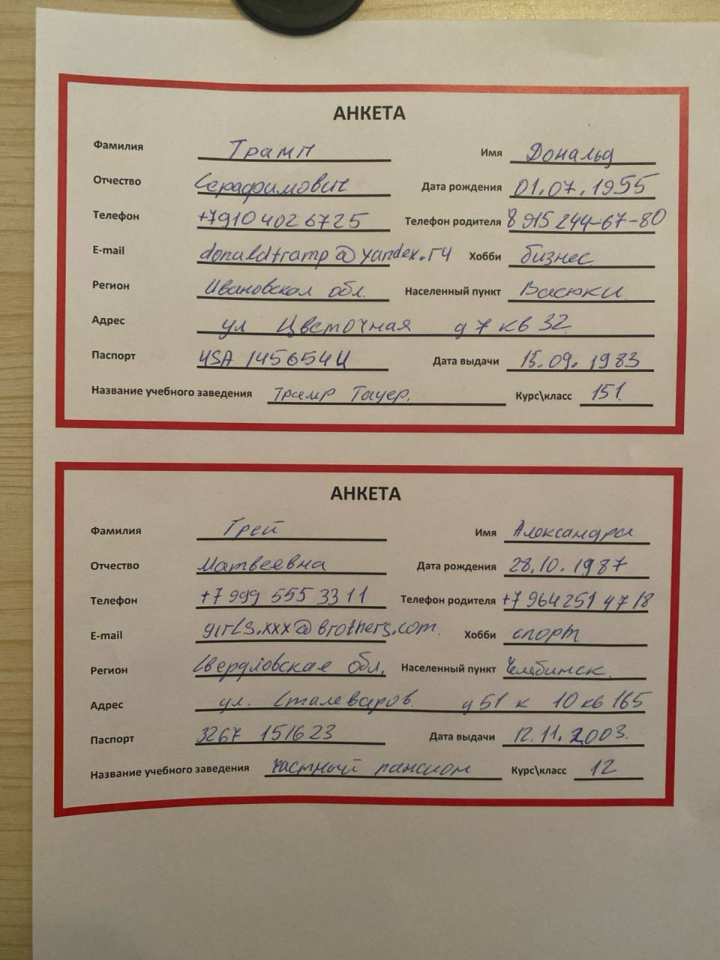 АНКЕТА
Фамилия Трамп Имя Дональд
Отчество Серафимович Дата рождения 01.07.1955
Телефон +7910 402 6725 Телефон родителя 8 915 244-67-80
E-mail donaldtramp@yandex.ry Хобби бизнес
Регион Ивановская обл. Населенный пункт Васюки
Адрес ул Цветочная д 7 кв 32
Паспорт USA 1456544 Дата выдачи 13.09.1983
Название учебного заведения Трамр Тауер. Курс\класс 151
АНКЕТА
Фамилия Грей Имя Александра
Отчество Матвеевна Дата рождения 28.10.1987
Телефон +7 999 555 3311 Телефон родителя +7 964 251 47 18
E-mail girls.xxx@brothers.com. Хобби спорт
Регион Свердловская обл. Населенный пункт Челябинск.
Адрес ул. Сталеваров д 51 к 10 кв 165
Паспорт 3267 151623 Дата выдачи 12.11.2003.
Название учебного заведения частный пансион Курс\класс 12